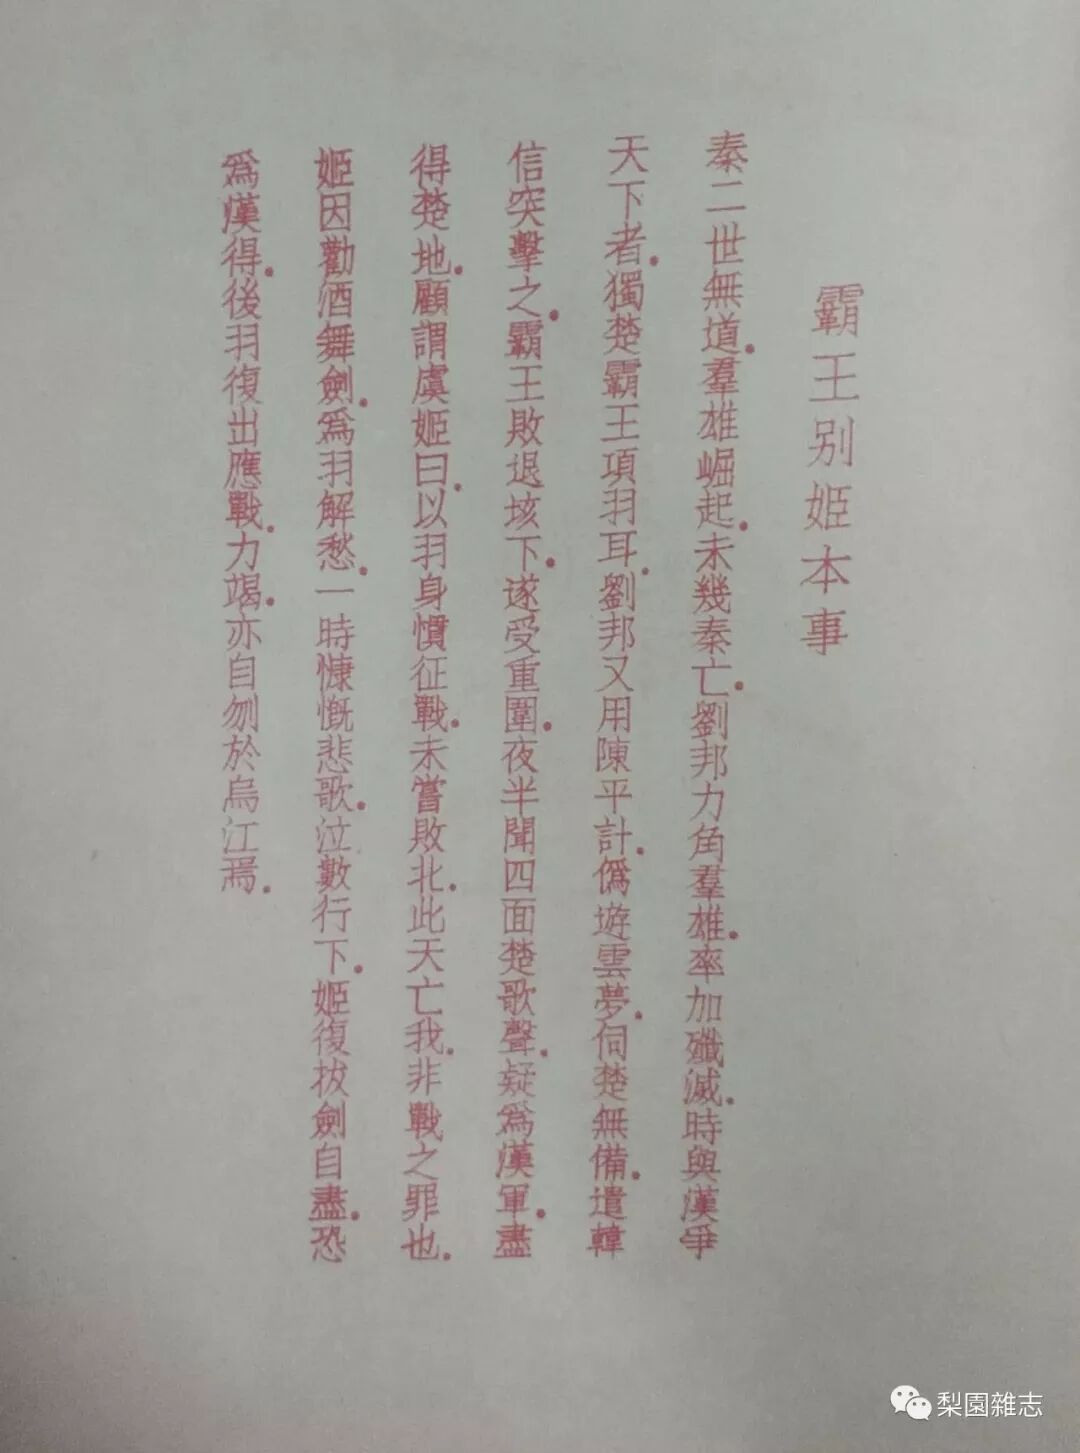 霸王别姬本事
秦二世無道.羣雄崛起.未幾秦亡.劉邦力角羣雄.率加殲滅.時與漢爭
天下者.獨楚霸王項羽耳.劉邦又用陳平計.僞遊雲夢.伺楚無備.遣韓
信突擊之.霸王敗退垓下.遂受重圍.夜半聞四面楚歌聲.疑爲漢軍.盡
得楚地.顧謂虞姬曰.以羽身慣征戰.未嘗敗北.此天亡我.非戰之罪也.
姬因勸酒舞劍.爲羽解愁.一時慷慨悲歌.泣數行下.姬復拔劍自盡.恐
爲漢得.後羽復出應戰.力竭.亦自刎於烏江焉.
梨園雜志